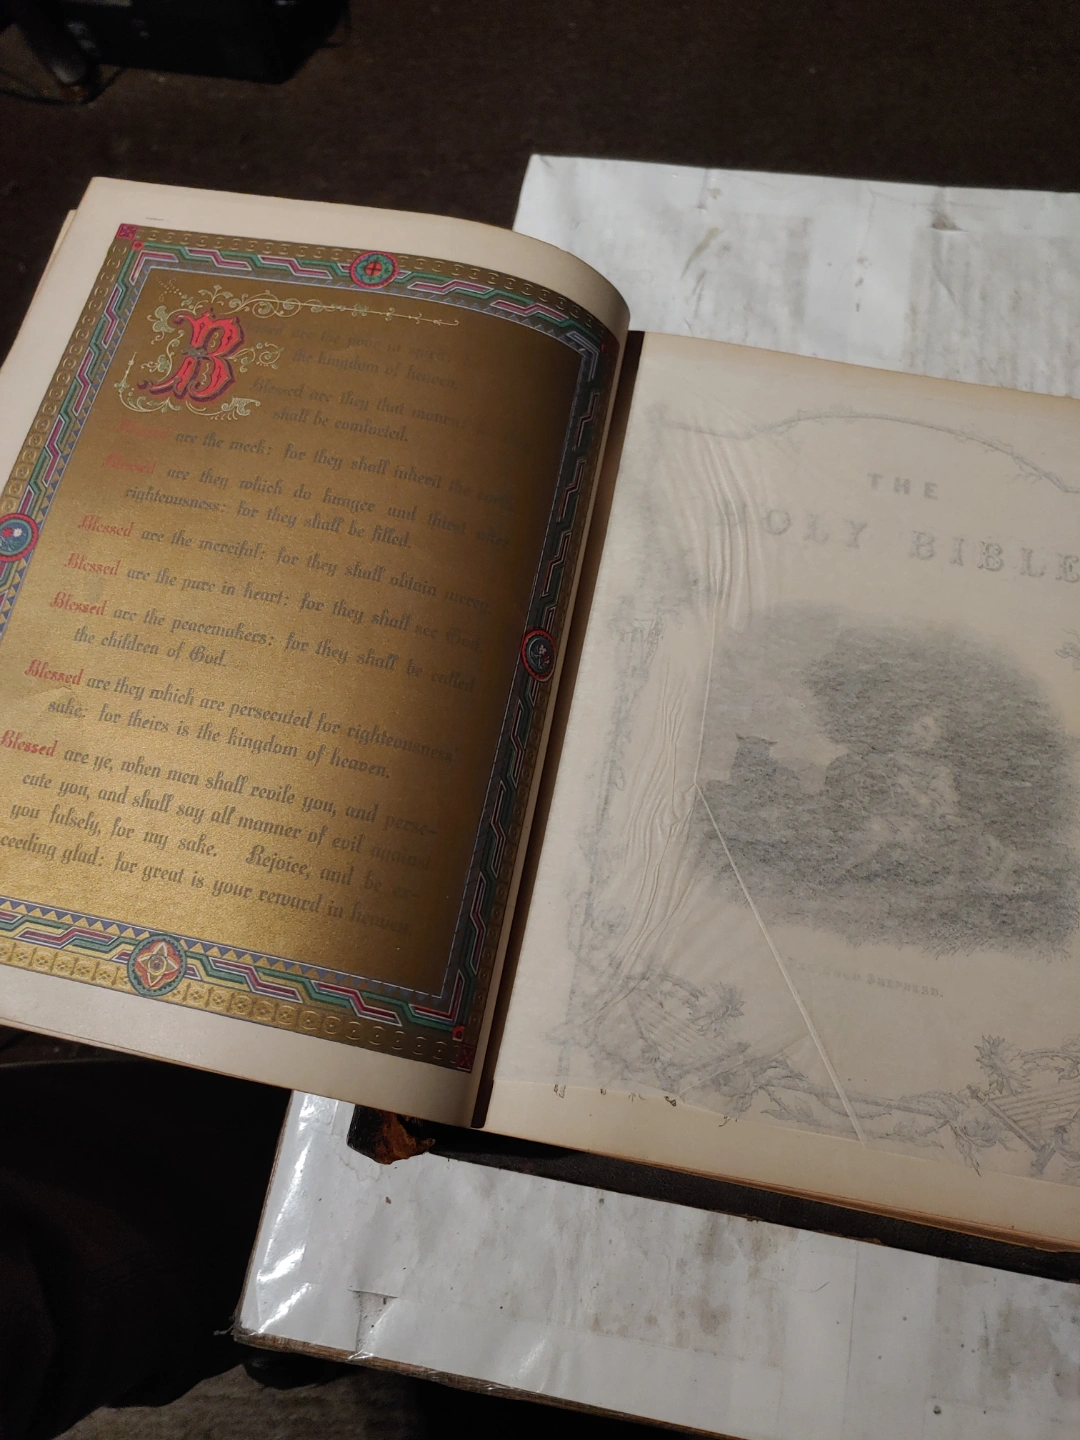 Blessed are the poor in spirit: for
the kingdom of heaven.
Blessed are they that mourn:
shall be comforted.
Blessed are the meek: for they shall inherit the earth.
Blessed are they which do hunger and thirst after
righteousness: for they shall be filled.
Blessed are the merciful: for they shall obtain mercy.
Blessed are the pure in heart: for they shall see God.
Blessed are the peacemakers: for they shall be called
the children of God.
Blessed are they which are persecuted for righteousness
sake: for theirs is the kingdom of heaven.
Blessed are ye, when men shall revile you, and perse-
cute you, and shall say all manner of evil against
you falsely, for my sake. Rejoice, and be ex-
ceeding glad: for great is your reward in heaven.
THE
HOLY BIBLE
THE GOOD SHEPHERD.